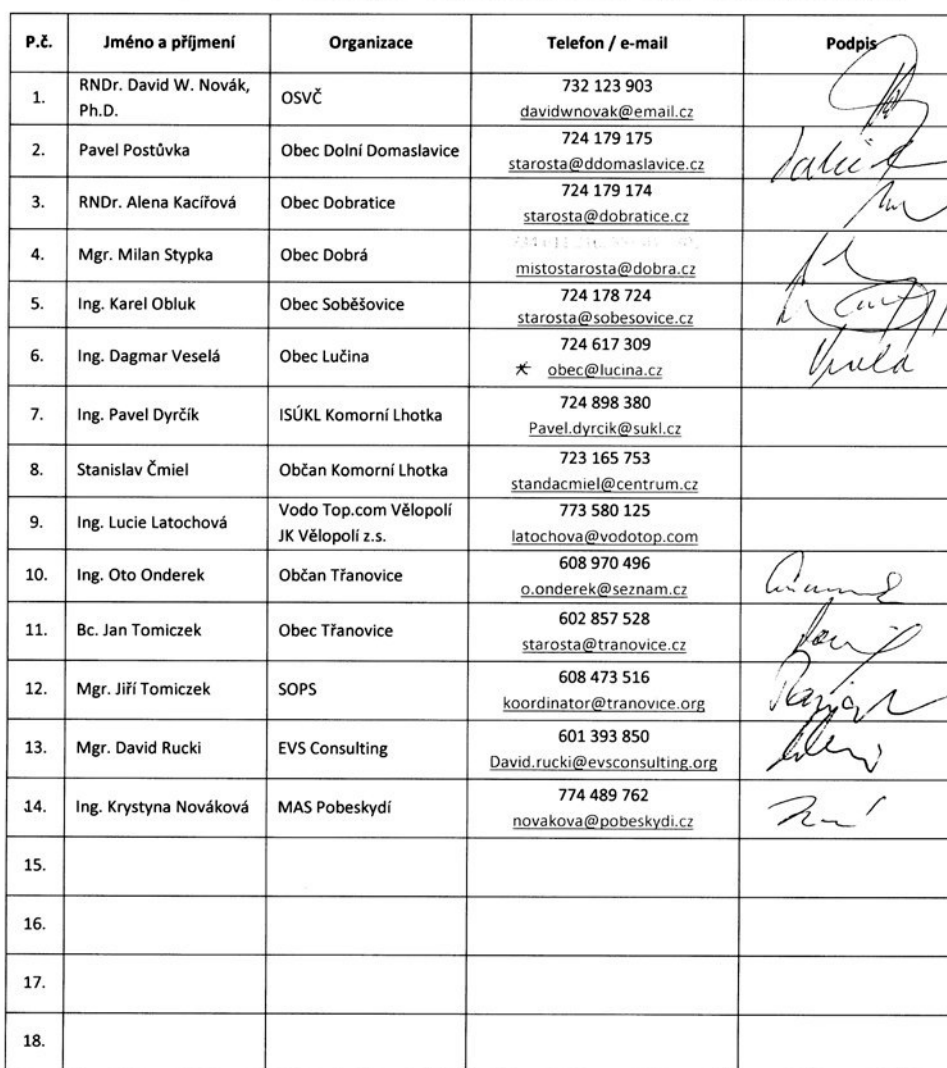 P.č. Jméno a příjmení Organizace Telefon / e-mail Podpis
1. RNDr. David W. Novák, Ph.D. OSVČ 732 123 903
davidwnovak@email.cz
2. Pavel Postůvka Obec Dolní Domaslavice 724 179 175
starosta@ddomaslavice.cz
3. RNDr. Alena Kacířová Obec Dobratice 724 179 174
starosta@dobratice.cz
4. Mgr. Milan Stypka Obec Dobrá
mistostarosta@dobra.cz
5. Ing. Karel Obluk Obec Soběšovice 724 178 724
starosta@sobesovice.cz
6. Ing. Dagmar Veselá Obec Lučina 724 617 309
* obec@lucina.cz
7. Ing. Pavel Dyrčík ISÚKL Komorní Lhotka 724 898 380
Pavel.dyrcik@sukl.cz
8. Stanislav Čmiel Občan Komorní Lhotka 723 165 753
standacmiel@centrum.cz
9. Ing. Lucie Latochová Vodo Top.com Vělopolí
JK Vělopolí z.s. 773 580 125
latochova@vodotop.com
10. Ing. Oto Onderek Občan Třanovice 608 970 496
o.onderek@seznam.cz
11. Bc. Jan Tomiczek Obec Třanovice 602 857 528
starosta@tranovice.cz
12. Mgr. Jiří Tomiczek SOPS 608 473 516
koordinator@tranovice.org
13. Mgr. David Rucki EVS Consulting 601 393 850
David.rucki@evsconsulting.org
14. Ing. Krystyna Nováková MAS Pobeskydí 774 489 762
novakova@pobeskydi.cz
15.
16.
17.
18.